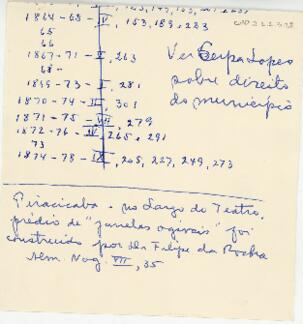 1864-65 - IV, 153, 189, 223
65
66
1867-71 - II, 263
68-
1869-73 - I, 281
1870-74 - II, 301
1871-75 - VII, 279
1872-76 - IV, 265, 291
73
1874-78 - IX, 205, 227, 249, 273
Ver Serpa Lopes
sobre direito
do municipio
Piracicaba - no Largo do Teatro,
prédio de "janelas ogivais" foi
construido por da Filipe da Rocha
Nem. Nog. VII, 35